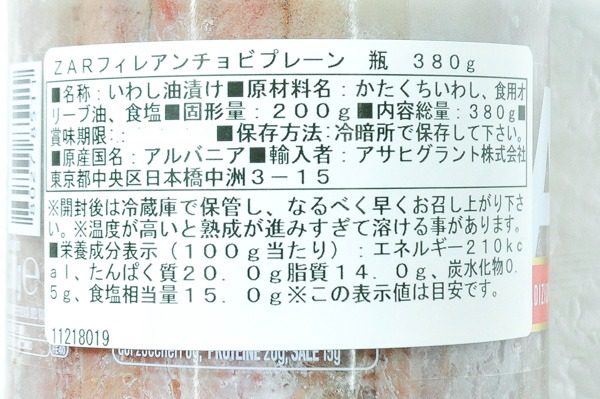 ZARフィレアンチョビプレーン 瓶 380g
■名称:いわし油漬け■原材料名:かたくちいわし、食用オ
リーブ油、食塩■固形量:200g■内容総量:380g■
賞味期限:. ■保存方法:冷暗所で保存して下さい。
■原産国名:アルバニア■輸入者:アサヒグラント株式会社
東京都中央区日本橋中洲3-15
※開封後は冷蔵庫で保管し、なるべく早くお召し上がり下さ
い。※温度が高いと熟成が進みすぎて溶ける事があります。
■栄養成分表示(100g当たり):エネルギー210kc
al、たんぱく質20.0g脂質14.0g、炭水化物0.
5g、食塩相当量15.0g※この表示値は目安です。
11218019
PROTEINE 20g, SALE 15g